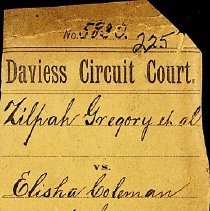 No. 5820. 225
Daviess Circuit Court.
Zilpah Gregory et al
vs.
Elisha Coleman